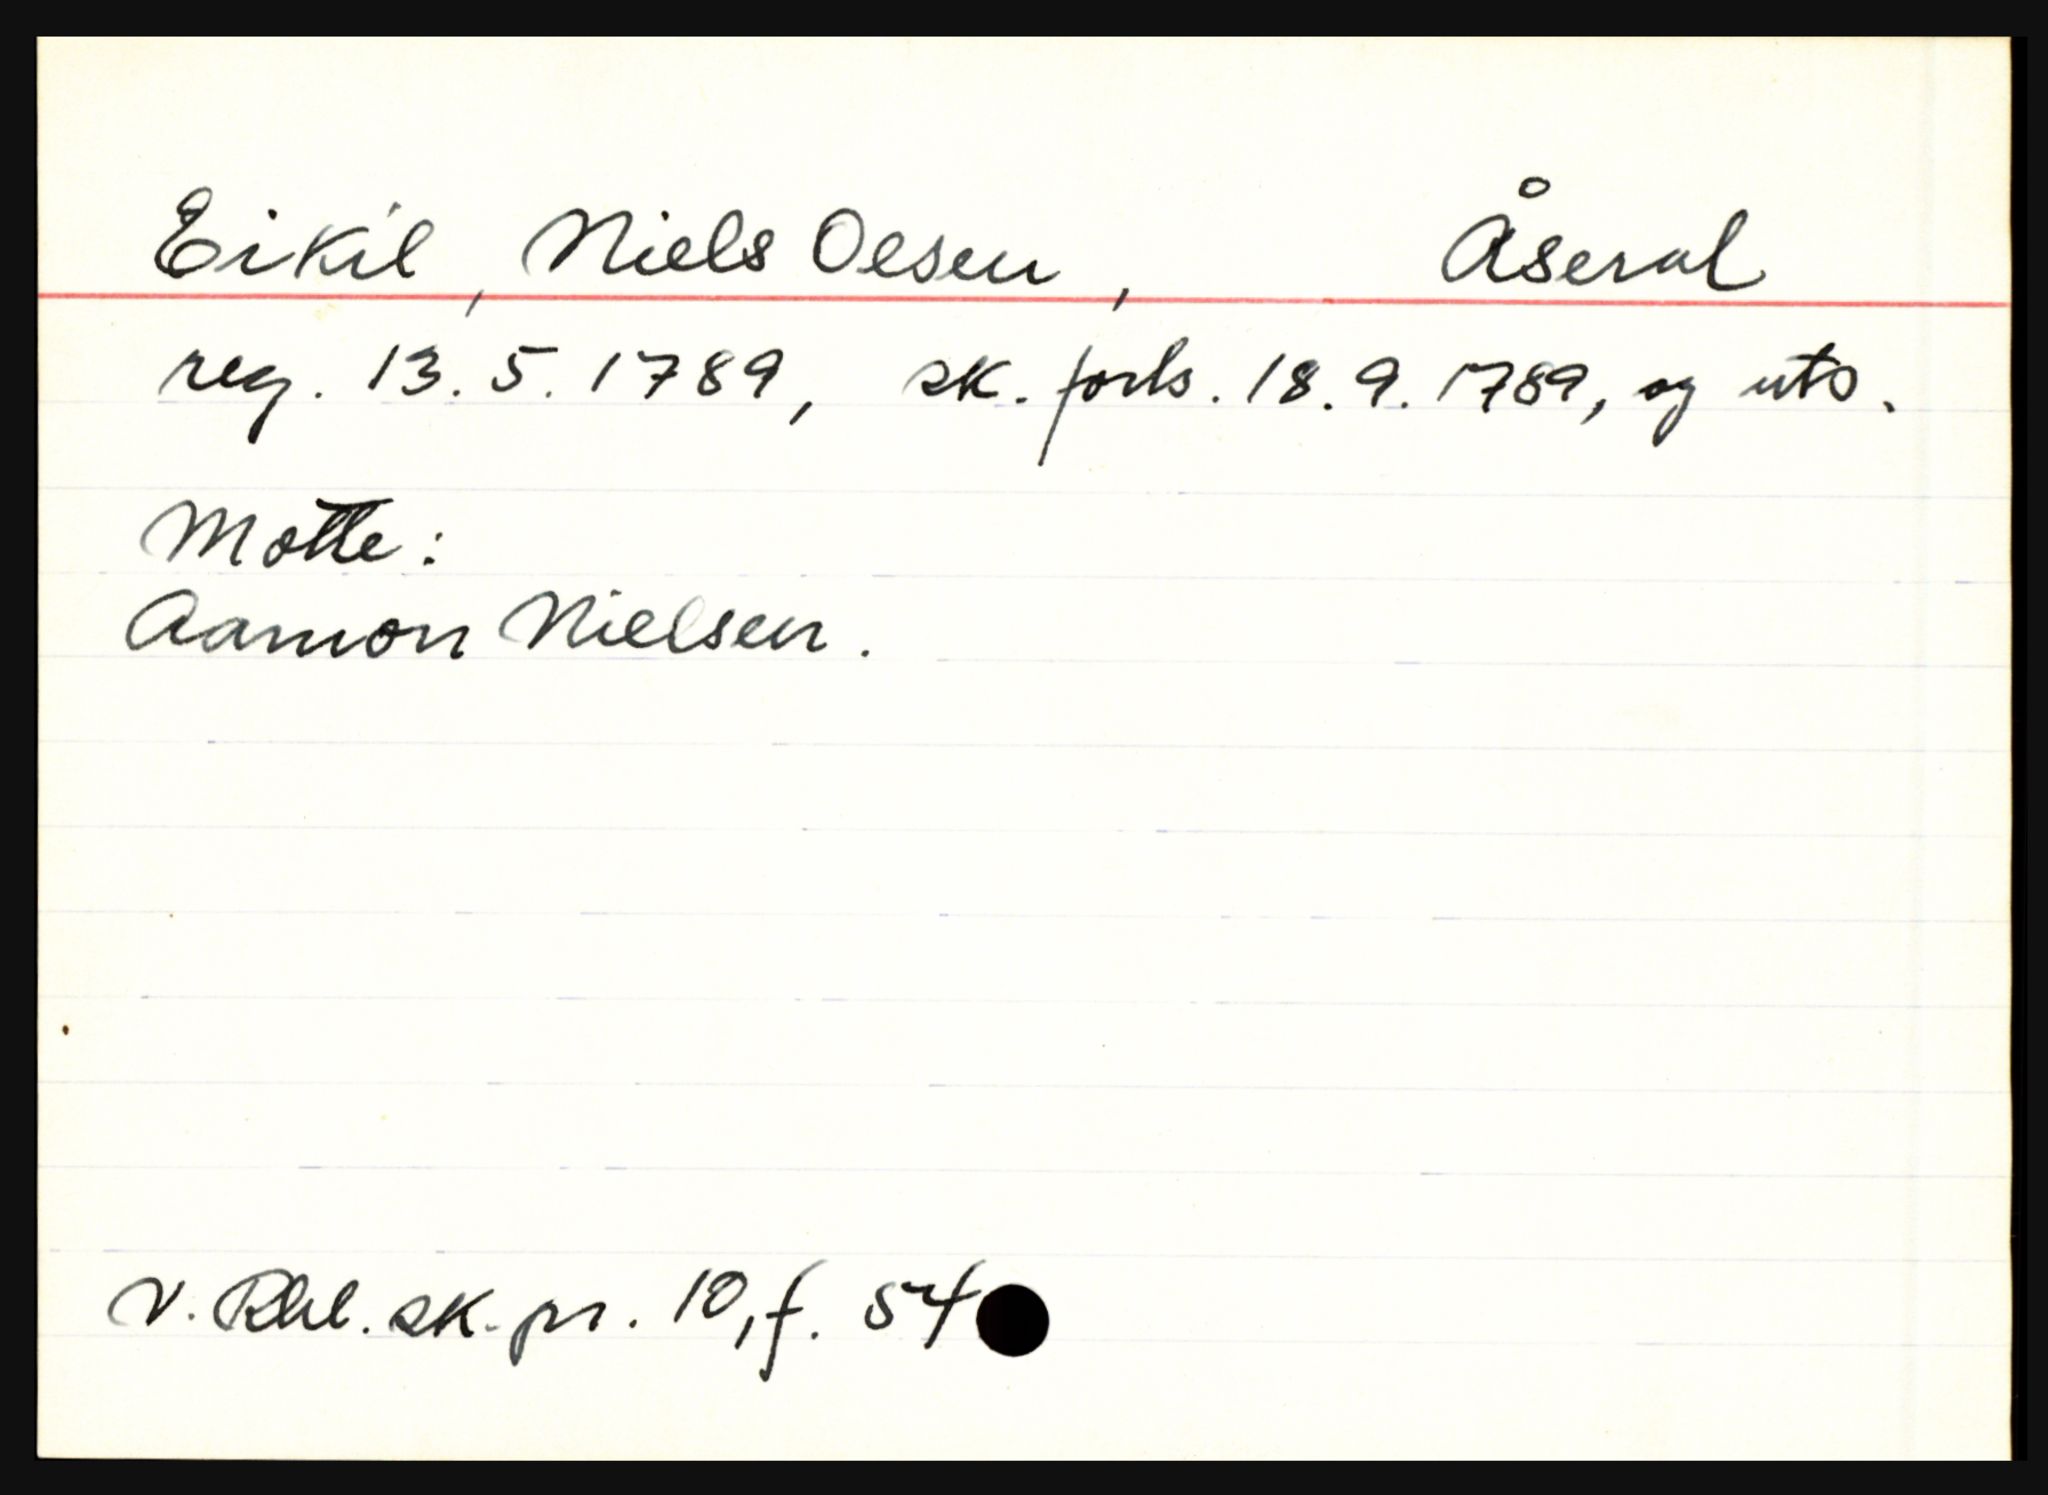 Eikil, Niels Olsen, Åseral
reg. 13.5.1789, sk. forts. 18.9.1789, og uts.
Møtte:
Aamon Nielsen.
V. Rbl. sk. pr. 10, f. 54